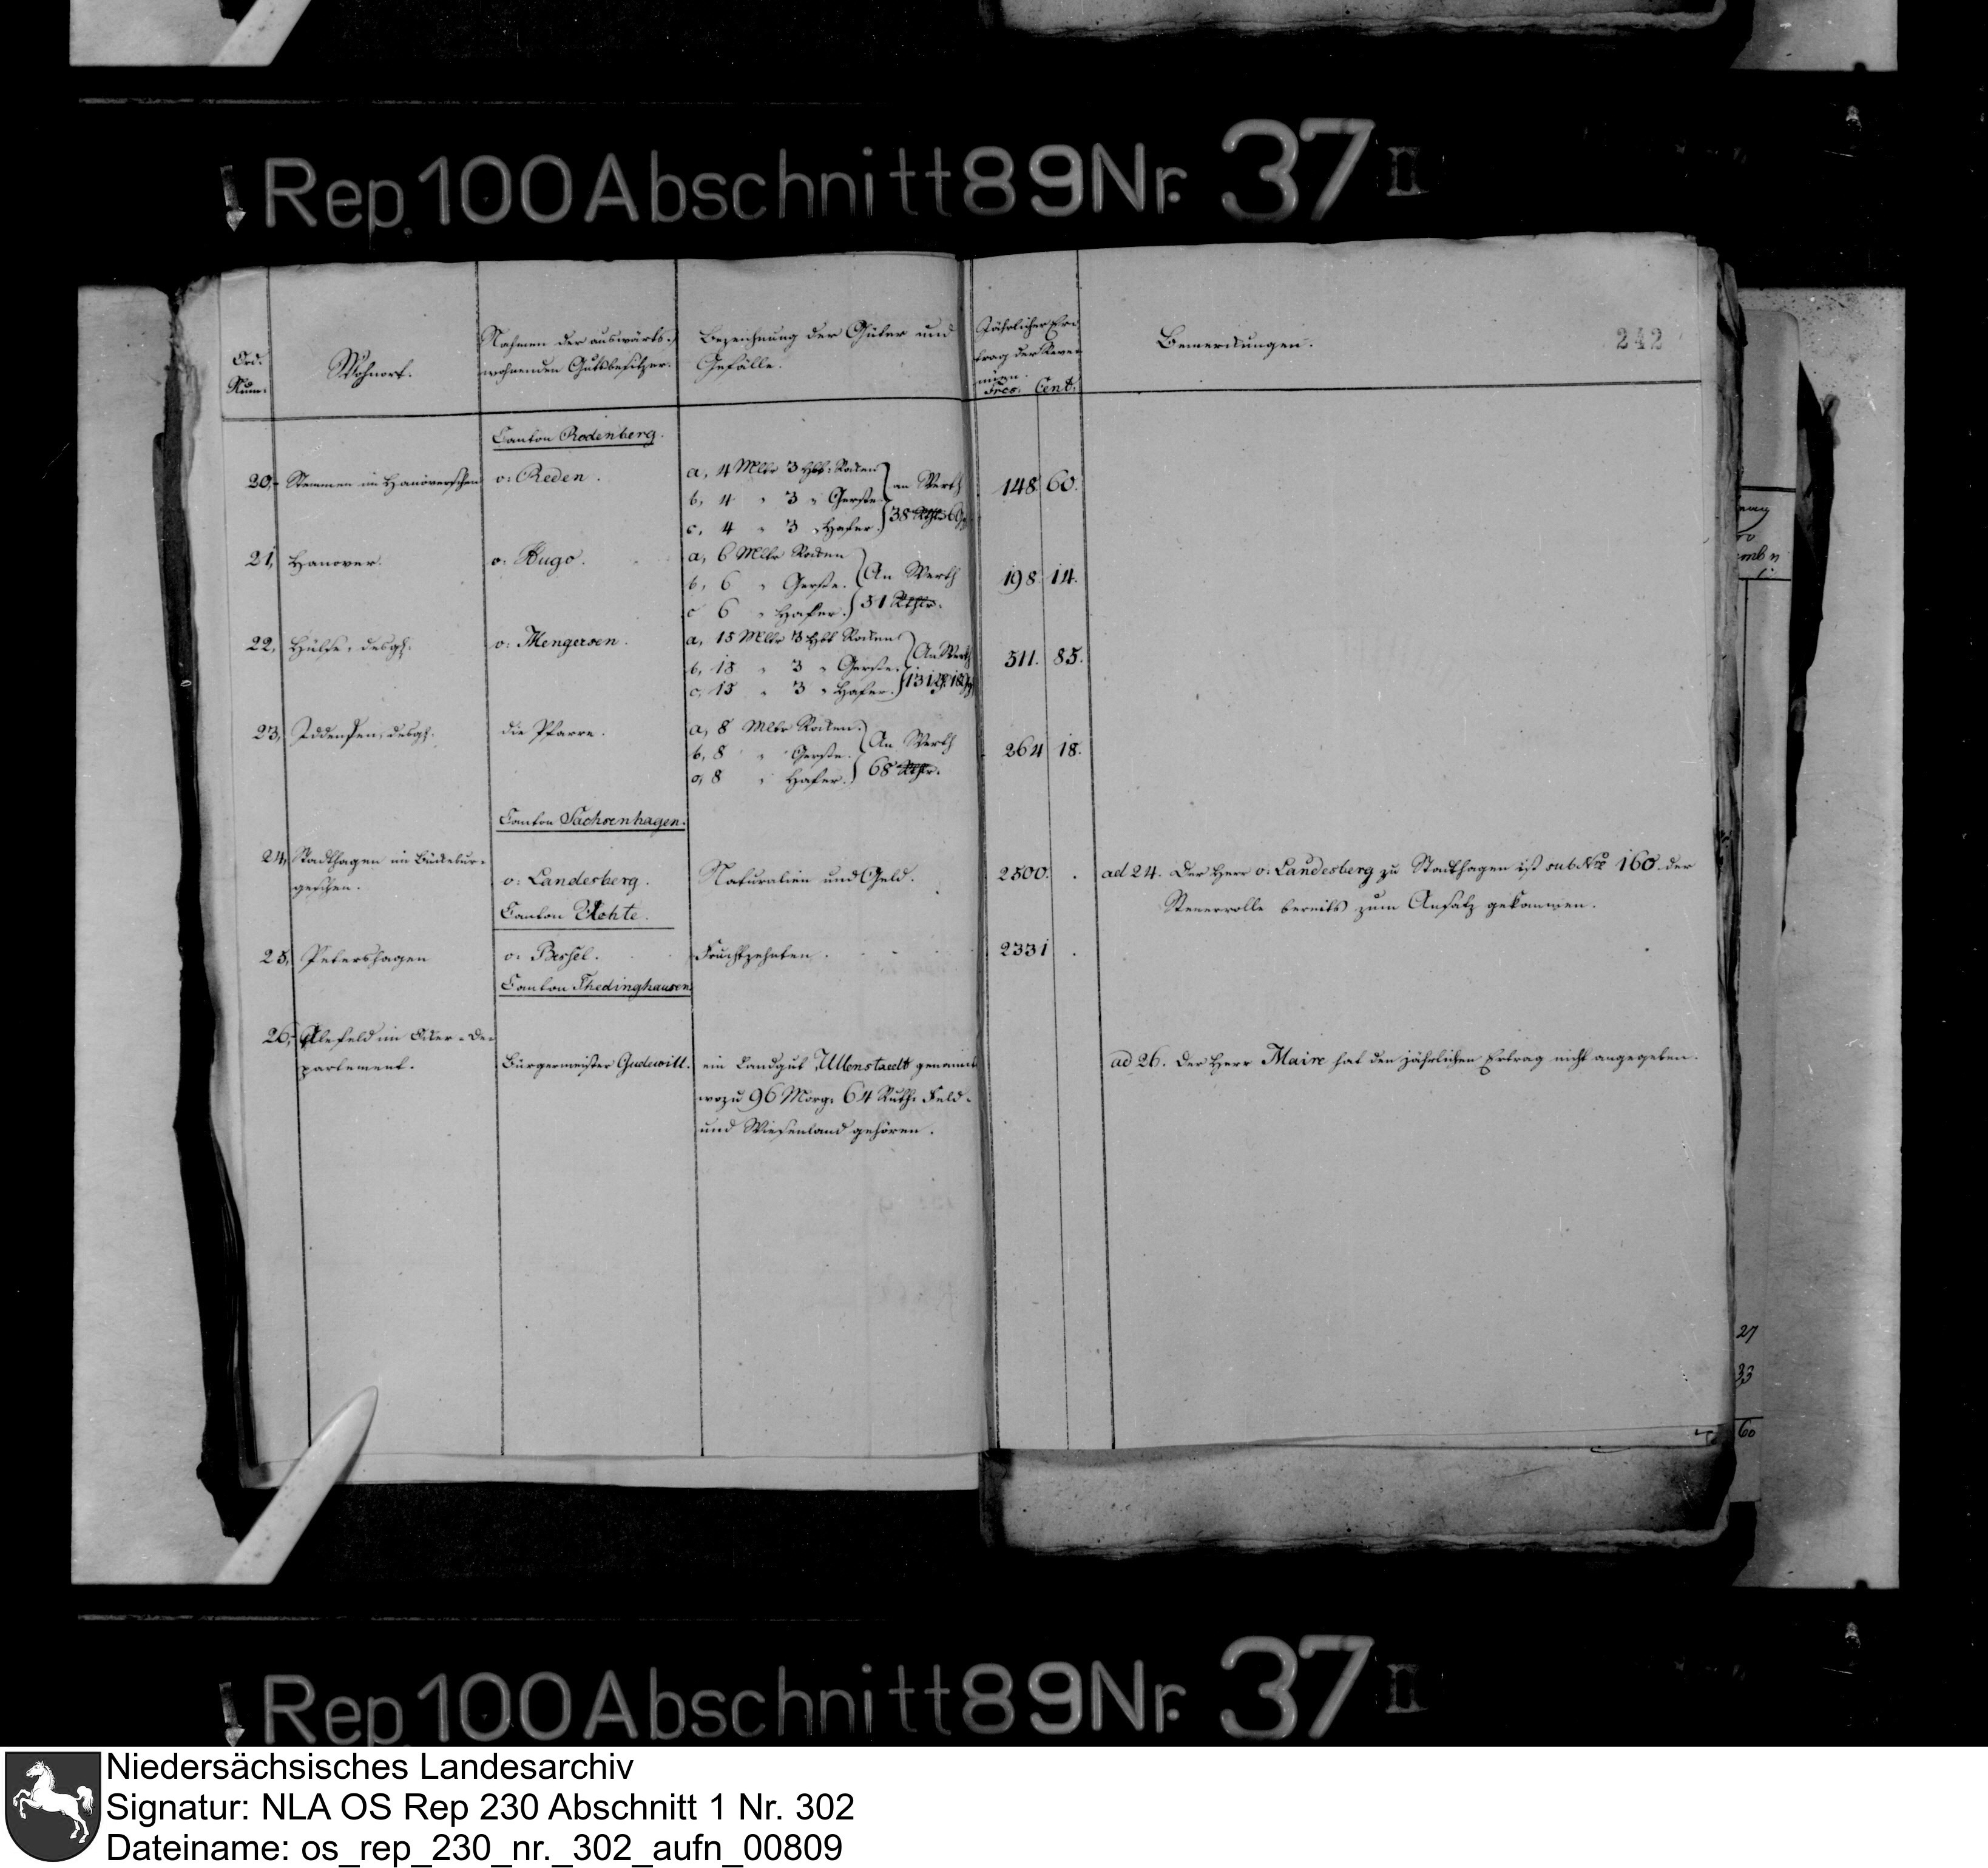 Rep. 100 Abschnitt 89 Nr. 37 II
242
Ord. Num:
Wohnort.
Nahmen der auswärts wohnenden Gutsbesitzer.
Bezeichnung der Güter und Gefälle.
Jährlicher Ertrag der Revenüen.
Frcs. Cent.
Bemerkungen.
Canton Rodenberg.
20, Stemmen im Hanöverschen v: Reden. a, 4 Mltr 3 Hbt: Rocken an Werth 148 60.
b, 4 " 3 " Gerste
c, 4 " 3 " Hafer. 38 Rthlr 6
21, Hanover. v: Hugo. a, 6 Mltr Rocken
b, 6 " Gerste. An Werth 198. 14.
c 6 " Hafer. 51 Rthlr.
22, Hülse, desgl. v: Mengersen. a, 15 Mltr 3 Hbt Rocken
b, 15 " 3 " Gerste. An Werth 511. 85.
c, 15 " 3 " Hafer.
23, Iddensen, desgl. die Pfarre. a, 8 Mltr Rocken.
b, 8 " Gerste. An Werth 264 18.
c, 8 " Hafer. 68 Rthlr.
Canton Sachsenhagen.
24, Stadthagen im Bückebur-
gerschen. v: Landesberg. Naturalien und Geld. 2500. . ad 24. Der Herr v: Landesberg zu Stadthagen ist sub Nro 160 der
Steuerrolle bereits zum Ansatz gekommen.
Canton Uchte.
25, Petershagen v: Bessel. Fruchtzehnten. 2331 .
Canton Thedinghausen
26, Alefeld im Ocker-De-
partement. Bürgermeister Gudewill. ein Landgut, Ullenstaedt genannt ad 26. Der Herr Maire hat den jährlichen Ertrag nicht angegeben.
wozu 96 Morg: 64 Ruth: Feld-
und Wiesenland gehören.
27
33
60
Rep. 100 Abschnitt 89 Nr. 37 II
Niedersächsisches Landesarchiv
Signatur: NLA OS Rep 230 Abschnitt 1 Nr. 302
Dateiname: os_rep_230_nr._302_aufn_00809